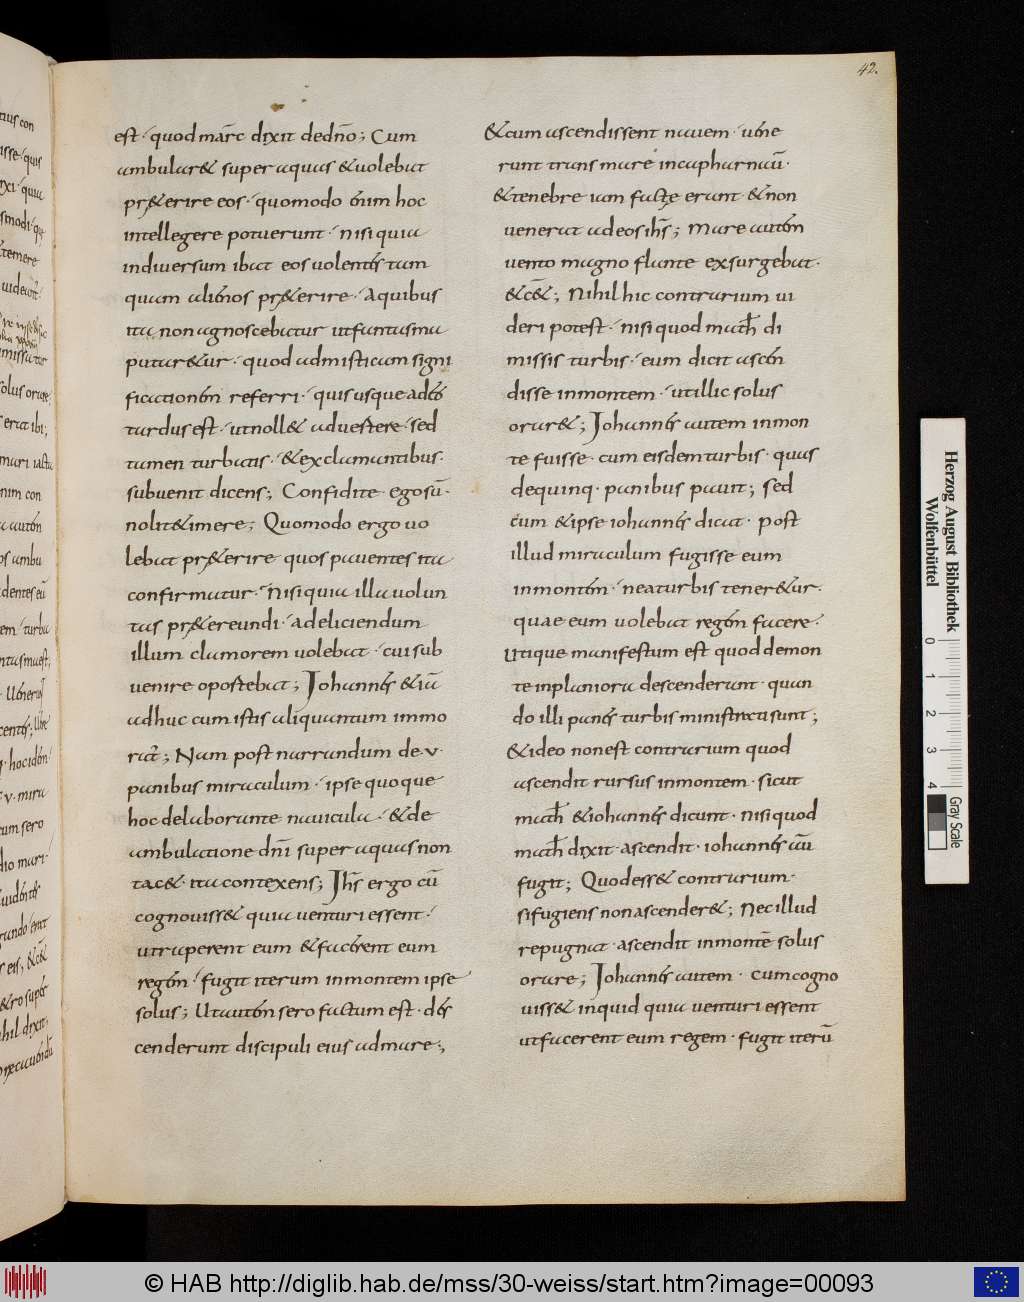 42.
est · quod marc dixit dedño; Cum
ambular& super aquas &uolebat
pr&erire eos · quomodo enim hoc
intellegere potuerunt · nisi quia
indiuersum ibat eos uolentes tam
quam alienos pr&erire · Aquibus
ita non agnoscebatur utfantasma
putar&ur · quod admisticam signi
ficationem referri · quis usque adeo
tardus est · utnoll& aduertere · sed
tamen turbatis · &exclamantibus ·
subuenit dicens; Confidite · egosū ·
nolit&imere; Quomodo ergo uo
lebat pr&erire quos pauentes ita
confirmatur · Nisi quia illa uolun
tas pr&ereundi · adeliciendum
illum clamorem uolebat · cui sub
uenire oportebat; Johannes &iā
adhuc cum istis aliquantum immo
rat̄; Nam post narrandum de · v ·
panibus miraculum · ipse quoque
hoc delaborante nauicula · &de
ambulatione dñi super aquas non
tac& · ita contexens; Jhs̄ ergo cū
cognouiss& quia uenturi essent ·
utraperent eum &facerent eum
regem · fugit iterum inmontem ipse
solus; Utautem sero factum est · des
cenderunt discipuli eius admare;
&cum ascendissent nauem · uene
runt trans mare incapharnaū ·
&tenebre iam factę erant &non
venerat adeos ihs̄; Mare autem
vento magno flante exsurgebat ·
&c̄&; Nihil hic contrarium ui
deri potest · nisi quod math̄ di
missis turbis · eum dicit ascen
disse inmontem · utillic solus
orar&; Johannes autem inmon
te fuisse · cum eisdem turbis · quas
dequinq · panibus pauit; sed
cum &ipse iohannes dicat · post
illud miraculum fugisse eum
inmontem · neaturbis tener&ur ·
quae eum uolebat regem facere ·
Utique manifestum est quod demon
te inplaniora descenderant · quan
do illi panes turbis ministrati sunt;
&ideo non est contrarium quod
ascendit rursus inmontem · sicut
math̄ &iohannes dicunt · nisi quod
math̄ dixit · ascendit · iohannes aū
fugit; Quodess& contrarium ·
sifugiens non ascender&; Nec illud
repugnat · ascendit inmontē solus
orare; Johannes autem · cum cogno
uiss& inquid quia uenturi essent
utfacerent eum regem · fugit iterū
Herzog August Bibliothek
Wolfenbüttel
0 1 2 3 4
Gray Scale
© HAB http://diglib.hab.de/mss/30-weiss/start.htm?image=00093